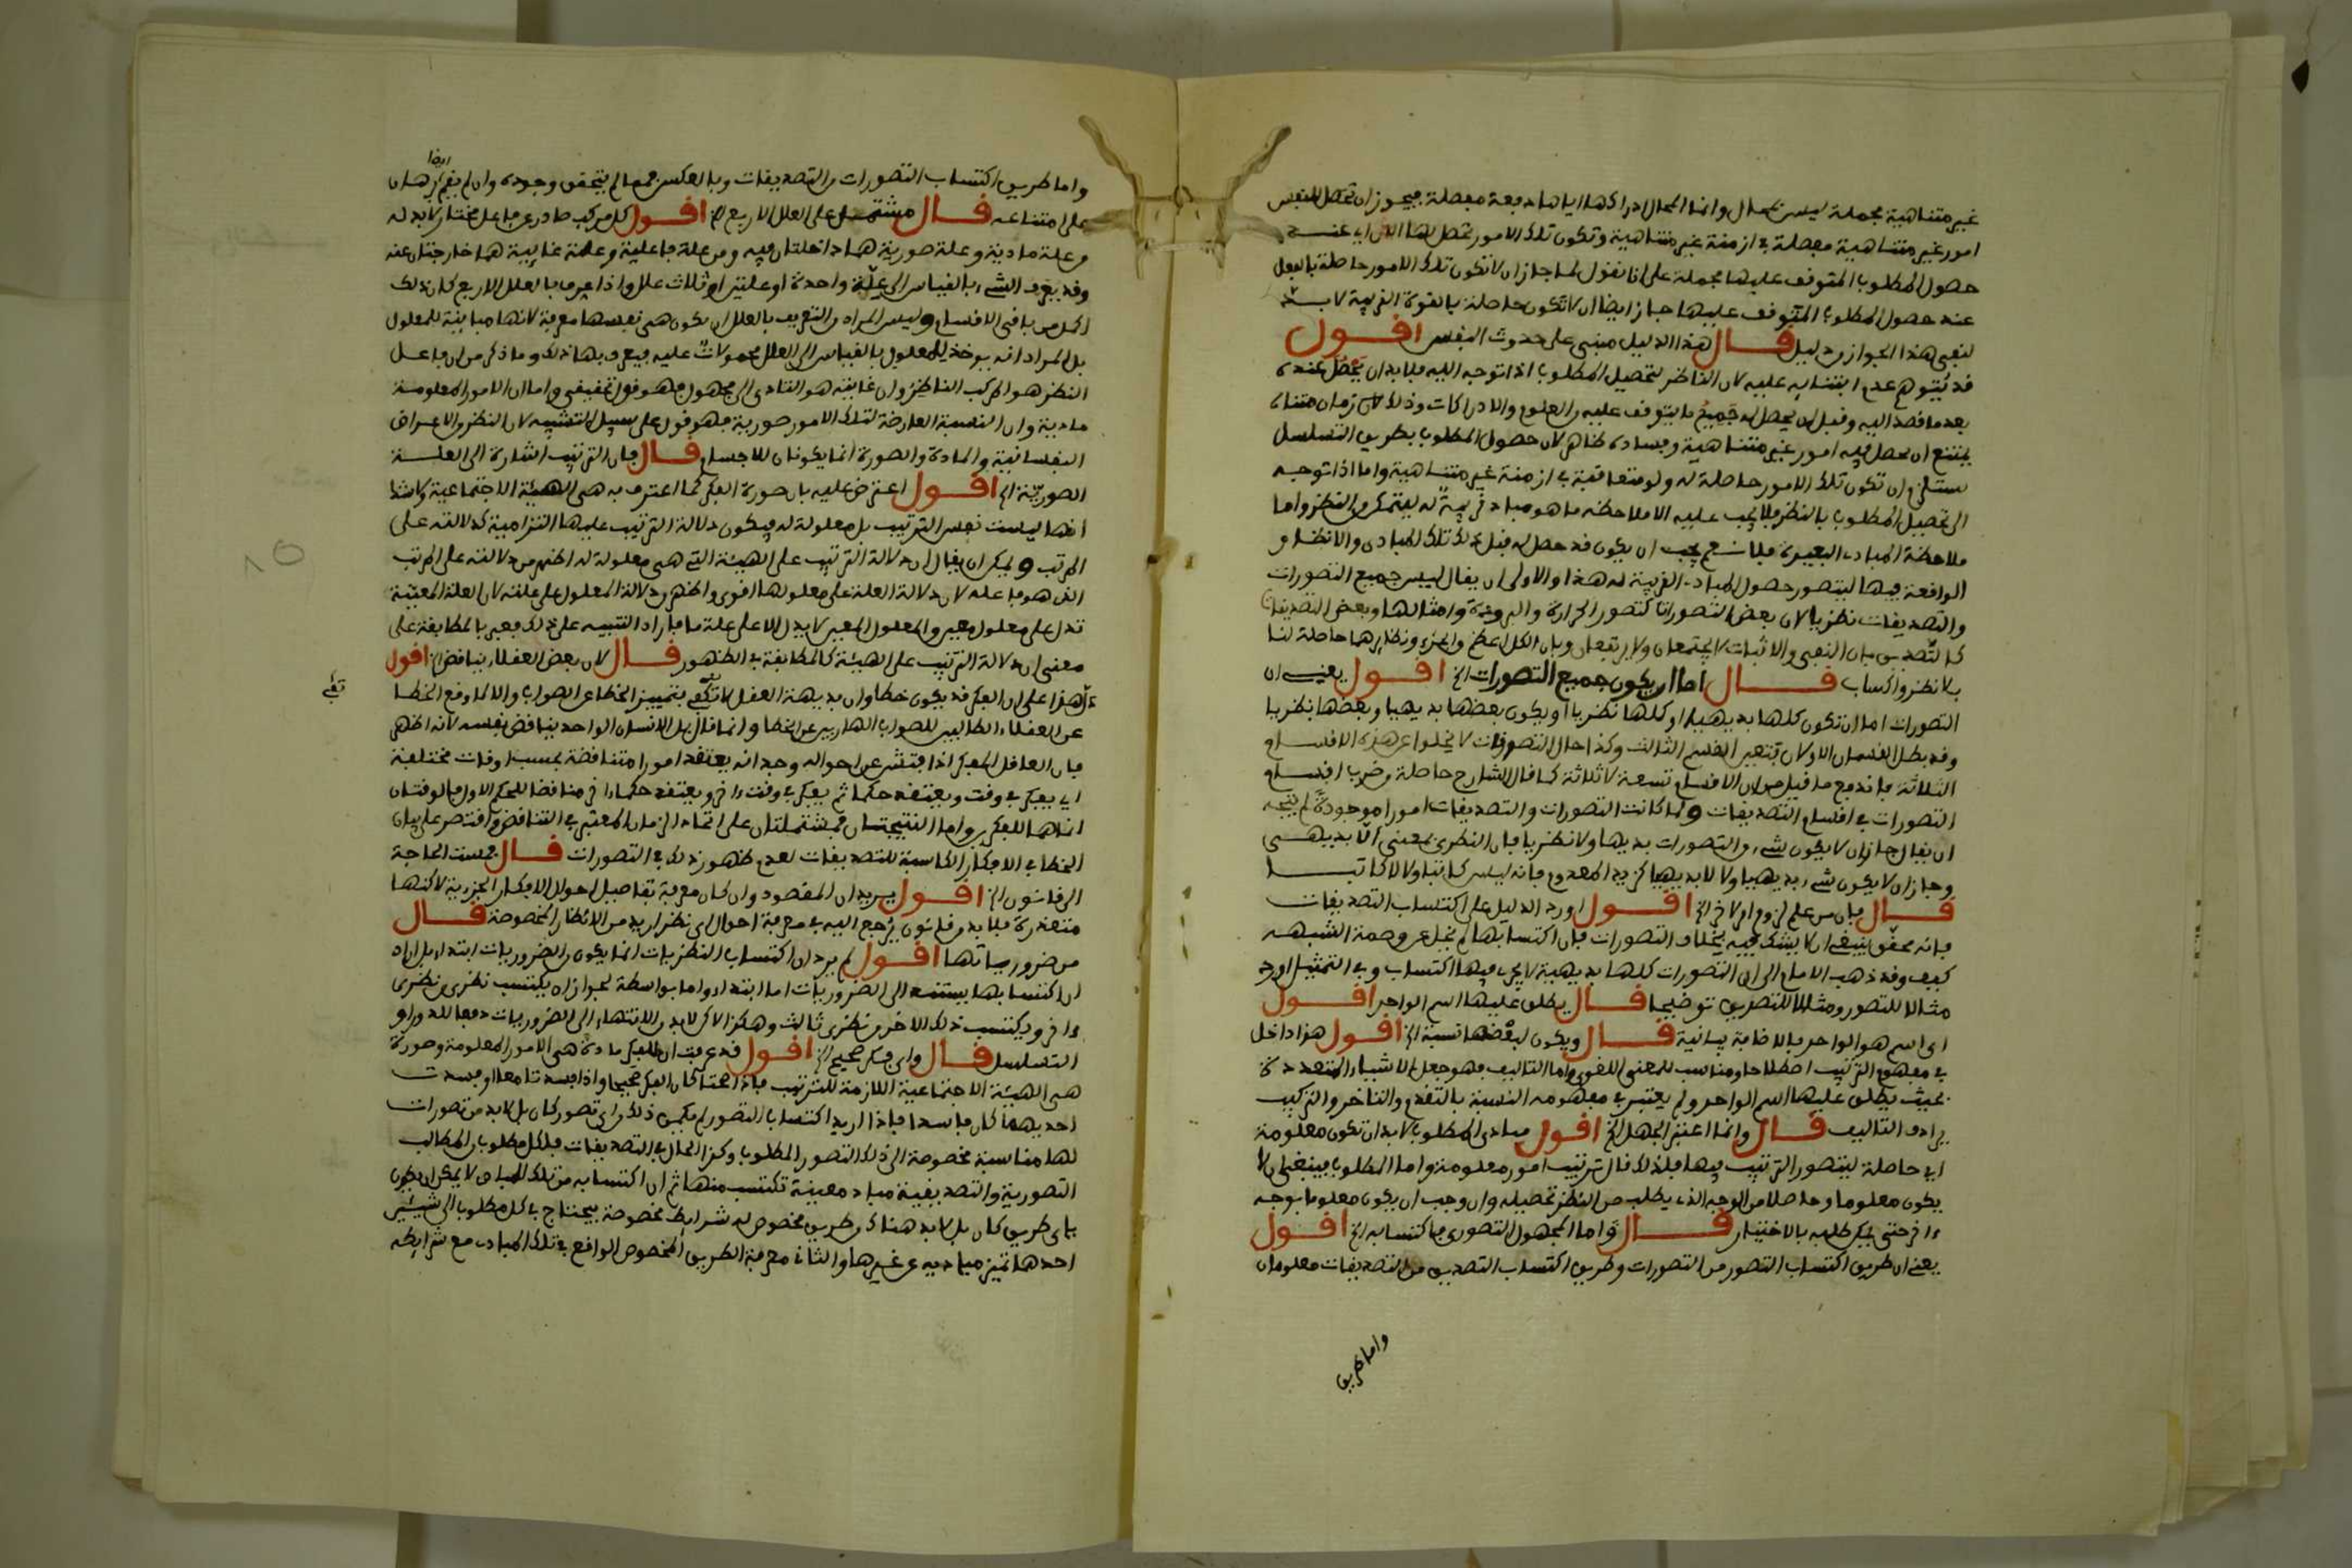 غير متناهية مجملة ليس بمحال وانما المحال ادراكها اياها دفعة مفصلة فيجوز ان تحصل للنفس
امور غير متناهية مفصلة في ازمنة غير متناهية وتكون تلك الامور تحصل لها
حصول المطلوب المتوقف عليها مجملة على انا نقول لما جاز ان لا تكون تلك الامور حاصلة بالفعل
عند حصول المطلوب المتوقف عليها جاز ايضا ان لا تكون حاصلة بالقوة القريبة لا بد
لنفي هذا الجواز من دليل قال هذا الدليل مبني على حدوث النفس اقول
قد يتوهم عدم ابتنايه عليه لان الناظر لتحصيل المطلوب اذا توجه اليه فلا بد ان يحصل عنده
بعد ما قصد اليه وقبل ان يحصل له جميع ما يتوقف عليه من العلوم والادراكات وذلك زمان متناه
يمتنع ان يحصل فيه امور غير متناهية وفساده ظاهر لان حصول المطلوب بطريق التسلسل
يستلزم ان تكون تلك الامور حاصلة له ولو متعاقبة في ازمنة غير متناهية واما اذا توجه
الى تحصيل المطلوب بالنظر فلا يجب عليه الا ملاحظة ما هو مباد قريبة له ليتمكن من النظر واما
ملاحظة المبادي البعيدة فلا نعم يجب ان يكون قد حصل له قبل ذلك تلك المبادي والانظار
الواقعة فيها ليتصور حصول المبادي القريبة له هذا والاولى ان يقال ليس جميع التصورات
والتصديقات نظريا لان بعض التصورات كتصور الحرارة والبرودة وامثالها وبعض التصديقات
كالتصديق بان النفي والاثبات لا يجتمعان ولا يرتفعان وبان الكل اعظم من الجزء ونظايرها حاصلة لنا
بلا نظر واكتساب قال اما ان يكون جميع التصورات الخ اقول يعني ان
التصورات اما ان تكون كلها بديهيا او كلها نظريا او يكون بعضها بديهيا وبعضها نظريا
وقد بطل القسمان الاولان فتعين القسم الثالث وكذا حال التصديقات لا يخلوا عن هذه الاقسام
الثلاثة فاندفع ما قيل من ان الاقسام تسعة لا ثلاثة كما قال الشارح حاصلة من ضرب اقسام
التصورات في اقسام التصديقات ولما كانت التصورات والتصديقات امورا موجودة لم يتجه
ان يقال جاز ان لا يكون شيء من التصورات بديهيا ولا نظريا فان النظري بمعنى اللابديهي
وجاز ان لا يكون شيء بديهيا ولا لا بديهيا كزيد المعدوم فانه ليس كاتبا ولا لا كاتبا
قال فان من علم لزوم امر لاخر الخ اقول اورد الدليل على اكتساب التصديقات
فانه محقق ينبغي ان لا يشك فيه بخلاف التصورات فان اكتسابها لم يخل عن وصمة الشبهة
كيف وقد ذهب الامام الى ان التصورات كلها بديهية لا يجري فيها اكتساب وفي التمثيل اورد
مثالا للتصور ومثالا للتصديق توضيحا قال يطلق عليها اسم الواحد اقول
اي اسم هو الواحد فالاضافة بيانية قال ويكون لبعضها نسبة الخ اقول هذا داخل
في مفهوم الترتيب اصطلاحا ومناسب للمعنى اللغوي واما التاليف فهو جعل الاشياء المتعددة
بحيث يطلق عليها اسم الواحد ولم يعتبر في مفهومه النسبة بالتقدم والتاخر والتركيب
يرادف التاليف قال وانما اعتبر الجهل الخ اقول مبادي المطلوب لا بد ان تكون معلومة
اي حاصلة ليتصور الترتيب فيها فلذلك قال ترتيب امور معلومة واما المطلوب فينبغي ان لا
يكون معلوما وحاصلا من الوجه الذي يطلب من النظر تحصيله وان وجب ان يكون معلوما بوجه
ءاخر حتى يمكن طلبه بالاختيار قال واما المجهول التصوري فاكتسابه الخ اقول
يعني ان طريق اكتساب التصور من التصورات وطريق اكتساب التصديق من التصديقات معلومان
واما طريق
واما طريق اكتساب التصورات من التصديقات وبالعكس فمما لم يتحقق وجوده وان لم يقم برهان
ايضا
على امتناعه قال مشتمل على العلل الاربع الخ اقول كل مركب صادر عن فاعل مختار لا بد له
من علة مادية وعلة صورية هما داخلتان فيه ومن علة فاعلية وعلة غايية هما خارجتان عنه
وقد يعرف الشيء بالقياس الى علة واحدة او علتين او ثلاث علل واذا عرف بالعلل الاربع كان ذلك
اكمل من باقي الاقسام وليس المراد من التعريف بالعلل ان يكون هي نفسها معرفة لانها مباينة للمعلول
بل المراد انه يوخذ للمعلول بالقياس الى العلل محمولات عليه فيعرف بها ذلك وما ذكر من ان فاعل
النظر هو المركب الناظر وان غايته هو التادي الى مجهول فهو قول تحقيقي واما ان الامور المعلومة
مادية وان النسبة العارضة لتلك الامور صورية فهو قول على سبيل التشبيه لان النظر من الاعراض
النفسانية والمادة والصورة انما يكونان للاجسام قال فان الترتيب اشارة الى العلة
الصورية الخ اقول اعترض عليه بان صورة الفكر كما اعترف به هي الهيئة الاجتماعية ولا شك
انها ليست نفس الترتيب بل معلولة له فيكون دلالة الترتيب عليها التزامية كدلالته على
المرتب ويمكن ان يقال ان دلالة الترتيب على الهيئة التي هي معلولة له اظهر من دلالته على المرتب
الذي هو فاعله لان دلالة العلة على معلولها اقوى واظهر من دلالة المعلول على علته لان العلة المعينة
تدل على معلول معين والمعلول المعين لا يدل الا على علة ما فاراد التنبيه على ذلك فعبر بالمطابقة على
معنى ان دلالة الترتيب على الهيئة كالمطابقة في الظهور قال لان بعض العقلاء يناقض الخ اقول
هذا على ان الفكر قد يكون خطا وان بديهة العقل لا تكفي بتمييز الخطا عن الصواب والا لما وقع الخطا
تفي
عن العقلاء الطالبين للصواب الهاربين عن الخطا وانما قال بل الانسان الواحد يناقض نفسه لانه اظهر
فان العاقل المفكر اذا فتش عن احواله وجد انه يعتقد امورا متناقضة بحسب اوقات مختلفة
اي يفكر في وقت ويعتقد حكما ثم يفكر في وقت ءاخر ويعتقد حكما ءاخر مناقضا للحكم الاول فالوقتان
انما هما للفكرين واما النتيجتان فمشتملتان على اتحاد الزمان المعتبر في التناقض واقتصر على بيان
الخطا في الافكار الكاسبة للتصديقات لعدم ظهور ذلك في التصورات قال فمست الحاجة
الى قانون الخ اقول يريد ان المقصود وان كان معرفة تفاصيل احوال الافكار الجزئية لاكنها
متعذرة فلا بد من قانون يرجع اليه في معرفة احوال اي نظر اريد من الانظار المخصوصة قال
من ضرورياتها اقول لم يرد ان اكتساب النظريات انما يكون من الضروريات ابتداء بل اراد
ان اكتسابها يستند الى الضروريات اما ابتداء واما بواسطة لجواز ان يكتسب نظري من نظري
ءاخر ويكتسب ذلك الاخر من نظري ثالث وهكذا لاكن لا بد من الانتهاء الى الضروريات دفعا للدور او
التسلسل قال واي فكر صحيح الخ اقول قد عرفت ان للفكر مادة هي الامور المعلومة وصورة
هي الهيئة الاجتماعية اللازمة للترتيب فاذا صحتا كان الفكر صحيحا واذا فسدتا معا او فسدت
احديهما كان فاسدا فاذا اريد اكتساب التصور لم يكن ذلك من اي تصور كان بل لا بد من تصورات
لها مناسبة مخصوصة الى ذلك التصور المطلوب وكذا الحال في التصديقات فلكل مطلوب من المطالب
التصورية والتصديقية مباد معينة تكتسب منها ثم ان اكتسابه من تلك المبادي لا يمكن ان يكون
باي طريق كان بل لا بد هناك من طريق مخصوص له شرايط مخصوصة فيحتاج في كل مطلوب الى شيئين
احدهما تميز مباديه عن غيرها والثاني معرفة الطريق المخصوص الواقع في تلك المبادي مع شرايطه